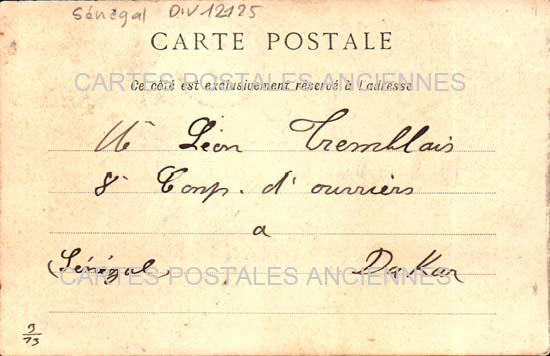 Sénégal DIV12125
CARTE POSTALE
CARTES POSTALES ANCIENNES
Ce côté est exclusivement réservé à l'adresse
Mr Léon Tremblais
8e Comp. d'ouvriers
a
(Sénégal Dakar
CARTES POSTALES ANCIENNES
3/13